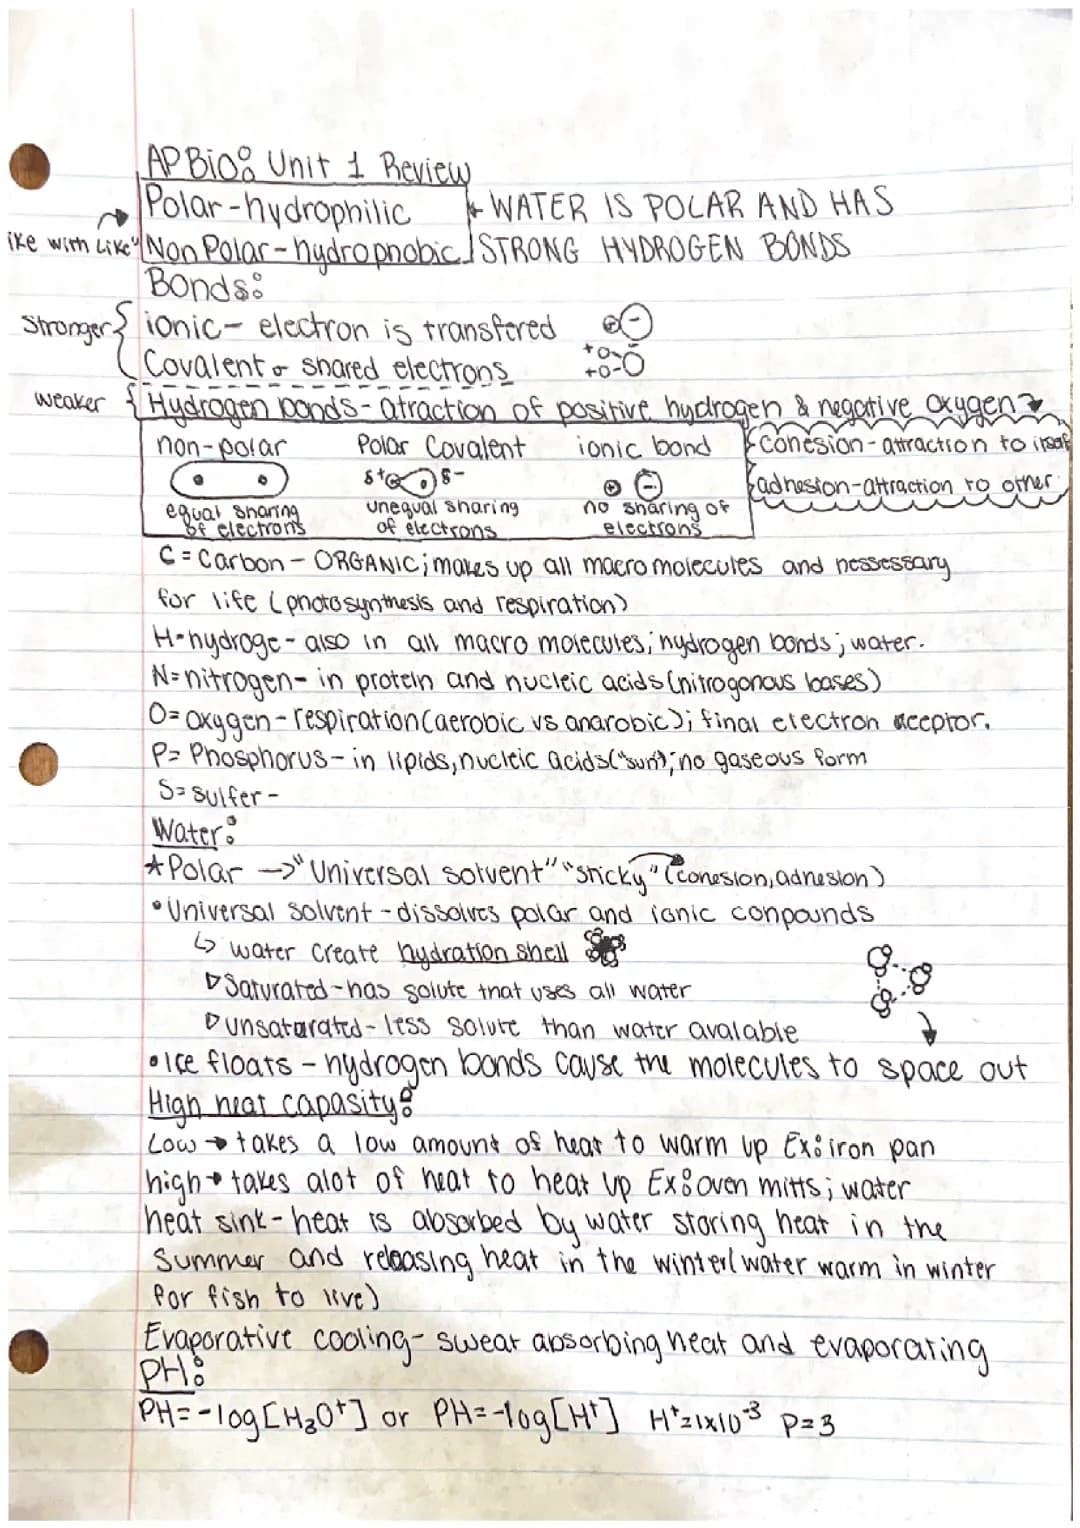 AP Bio: Unit 1 Review
Polar-hydrophilic
← WATER IS POLAR AND HAS
ike with Like" Non Polar-hydrophobic
STRONG HYDROGEN BONDS
Bonds:
Stronger ionic- electron is transfered
Covalent- shared electrons
weaker Hydrogen bonds- atraction of positive hydrogen & negative oxygen
non-polar Polar Covalent ionic bond
cohesion-attraction to itself
δ+ δ-
adhesion-attraction to other
equal sharing of electrons
unequal sharing of electrons
no sharing of electrons
C=Carbon- ORGANIC; makes up all macromolecules and nessessary
for life (photosynthesis and respiration)
H-hydroge- also in all macro molecules; hydrogen bonds; water.
N=nitrogen- in protein and nucleic acids (nitrogonous bases)
O=oxygen-respiration (aerobic vs anarobic); final electron aceptor.
P= Phosphorus- in lipids, nucleic acids ("sun"); no gaseous form
S=sulfer-
Water:
★Polar → "Universal solvent" "sticky" (cohesion, adhesion)
•Universal solvent-dissolves polar and ionic conpounds
↳ water create hydration shell
▷Saturated-has solute that uses all water
▷unsaturated- less solute than water avalable
•Ice floats - hydrogen bonds cause the molecules to space out
High heat capasity:
Low → takes a low amount of heat to warm up Ex: iron pan
high → takes alot of heat to heat up Ex: oven mitts; water
heat sink- heat is absorbed by water storing heat in the
Summer and releasing heat in the winter (water warm in winter
for fish to live)
Evaporative cooling- sweat absorbing heat and evaporating
PH:
PH=-log[H₃O⁺] or PH=-log[H⁺] H⁺=1x10⁻³ P=3